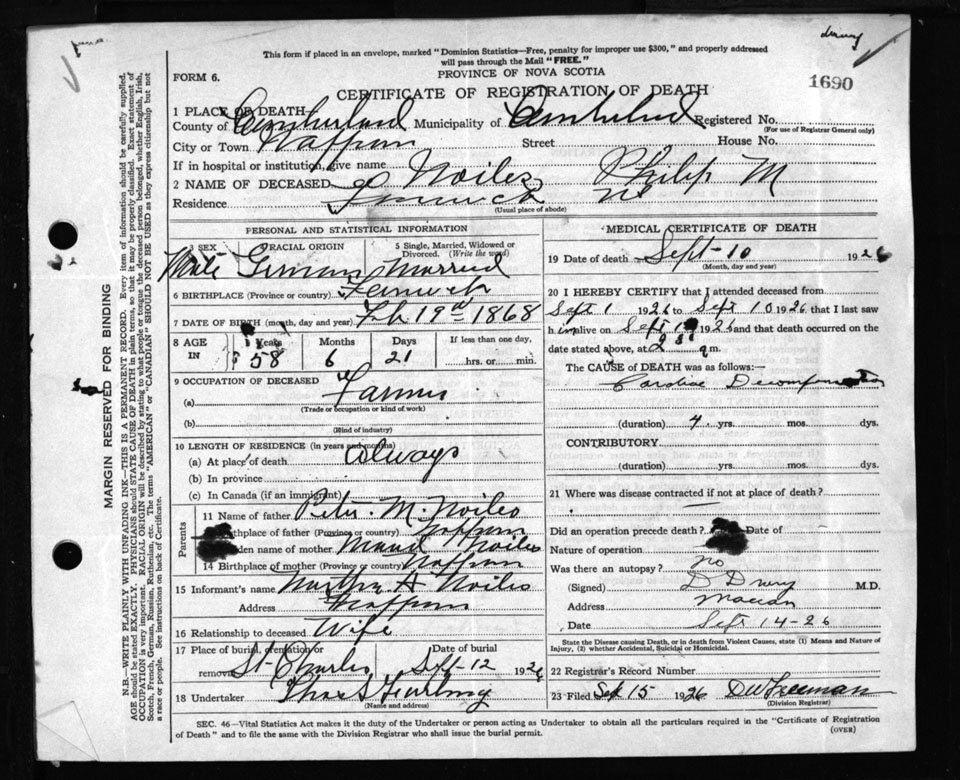 This form if placed in an envelope, marked "Dominion Statistics—Free, penalty for improper use $300," and properly addressed
will pass through the Mail "FREE."
PROVINCE OF NOVA SCOTIA
FORM 6.
1690
CERTIFICATE OF REGISTRATION OF DEATH
1 PLACE OF DEATH
County of Cumberland Municipality of Cumberland Registered No.
(For use of Registrar General only)
City or Town Nappan Street House No.
If in hospital or institution, give name
2 NAME OF DECEASED Noiles Philip M
Residence Fenwick
(Usual place of abode)
PERSONAL AND STATISTICAL INFORMATION
3 SEX 4 RACIAL ORIGIN 5 Single, Married, Widowed or Divorced. (Write the word)
Male German Married
6 BIRTHPLACE (Province or country) Fenwick
7 DATE OF BIRTH (month, day and year) Feb 19th 1868
8 AGE IN Years Months Days If less than one day,
58 6 21 hrs. or min.
9 OCCUPATION OF DECEASED
(a) Farmer
(Trade or occupation or kind of work)
(b)
(Kind of industry)
10 LENGTH OF RESIDENCE (in years and months)
(a) At place of death always
(b) In province
(c) In Canada (if an immigrant)
Parents
11 Name of father Peter M. Noiles
Birthplace of father (Province or country) Nappan
den name of mother Noiles
14 Birthplace of mother (Province or country) Nappan
15 Informant's name Martha A Noiles
Address Nappan
16 Relationship to deceased Wife
17 Place of burial, cremation or removal Date of burial
St Charles Sept-12 1926
18 Undertaker
(Name and address)
MEDICAL CERTIFICATE OF DEATH
19 Date of death Sept-10 1926
(Month, day and year)
20 I HEREBY CERTIFY that I attended deceased from
Sept 1 1926 to Sept 10 1926 that I last saw
h im alive on Sept 1926 and that death occurred on the
date stated above, at m.
The CAUSE of DEATH was as follows:—
Cardiac Decompensation
(duration) 4 yrs. mos. dys.
CONTRIBUTORY
(duration) yrs. mos. dys.
21 Where was disease contracted if not at place of death?
Did an operation precede death? Date of
Nature of operation
Was there an autopsy? no
(Signed) D Drury M.D.
Address Maccan
Date Sept 14-26
State the Disease causing Death, or in death from Violent Causes, state (1) Means and Nature of
Injury, (2) whether Accidental, Suicidal or Homicidal.
22 Registrar's Record Number
23 Filed Sept 15 1926 D W Freeman
(Division Registrar)
SEC. 46—Vital Statistics Act makes it the duty of the Undertaker or person acting as Undertaker to obtain all the particulars required in the "Certificate of Registration
of Death" and to file the same with the Division Registrar who shall issue the burial permit.
(OVER)
MARGIN RESERVED FOR BINDING
N.B.—WRITE PLAINLY WITH UNFADING INK—THIS IS A PERMANENT RECORD. Every item of information should be carefully supplied.
AGE should be stated EXACTLY. PHYSICIANS should STATE CAUSE OF DEATH in plain terms, so that it may be properly classified. Exact statement of
OCCUPATION is very important. RACIAL ORIGIN will be described by stating to what people or tongue the deceased person belonged, whether English, Irish,
Scotch, French, German, Russian, Ruthenian, etc. The terms "AMERICAN" or "CANADIAN" SHOULD NOT BE USED as they express citizenship but not
a race or people. See instructions on back of Certificate.